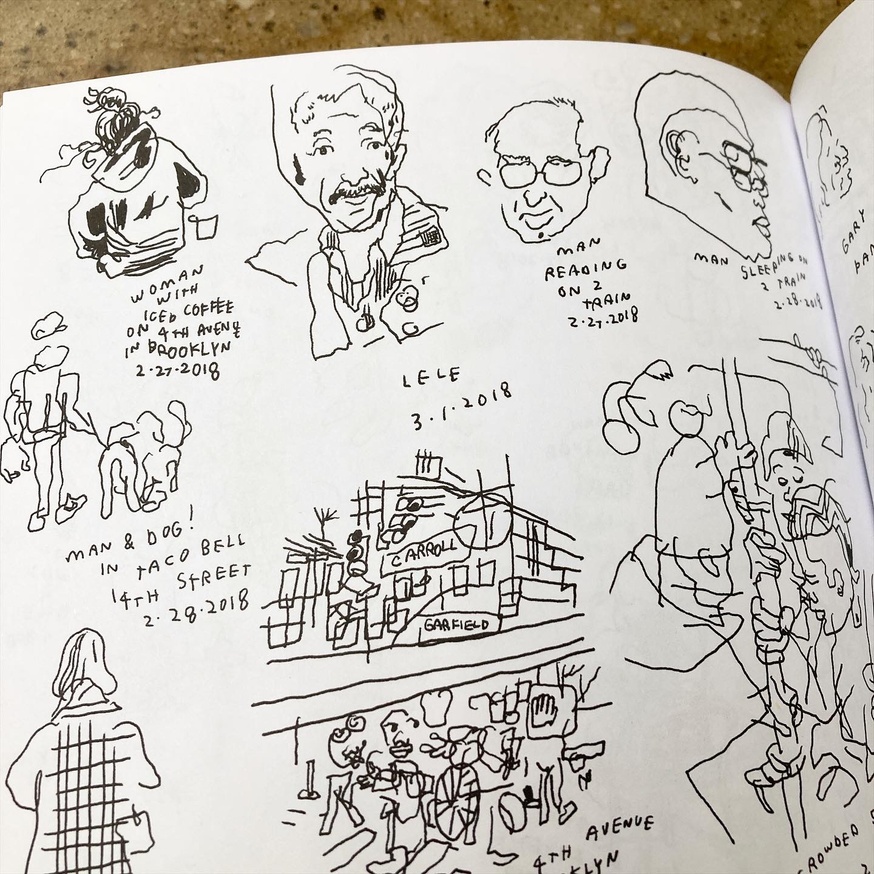 WOMAN
WITH
ICED COFFEE
ON 4TH AVENUE
IN BROOKLYN
2-27-2018
LELE
3.1.2018
MAN
READING
ON 2
TRAIN
2-27-2018
MAN SLEEPING ON
2 TRAIN
2-28-2018
GARY
MAN & DOG!
IN TACO BELL
14TH STREET
2-28-2018
CARROLL
GARFIELD
4TH AVENUE
CROWDED